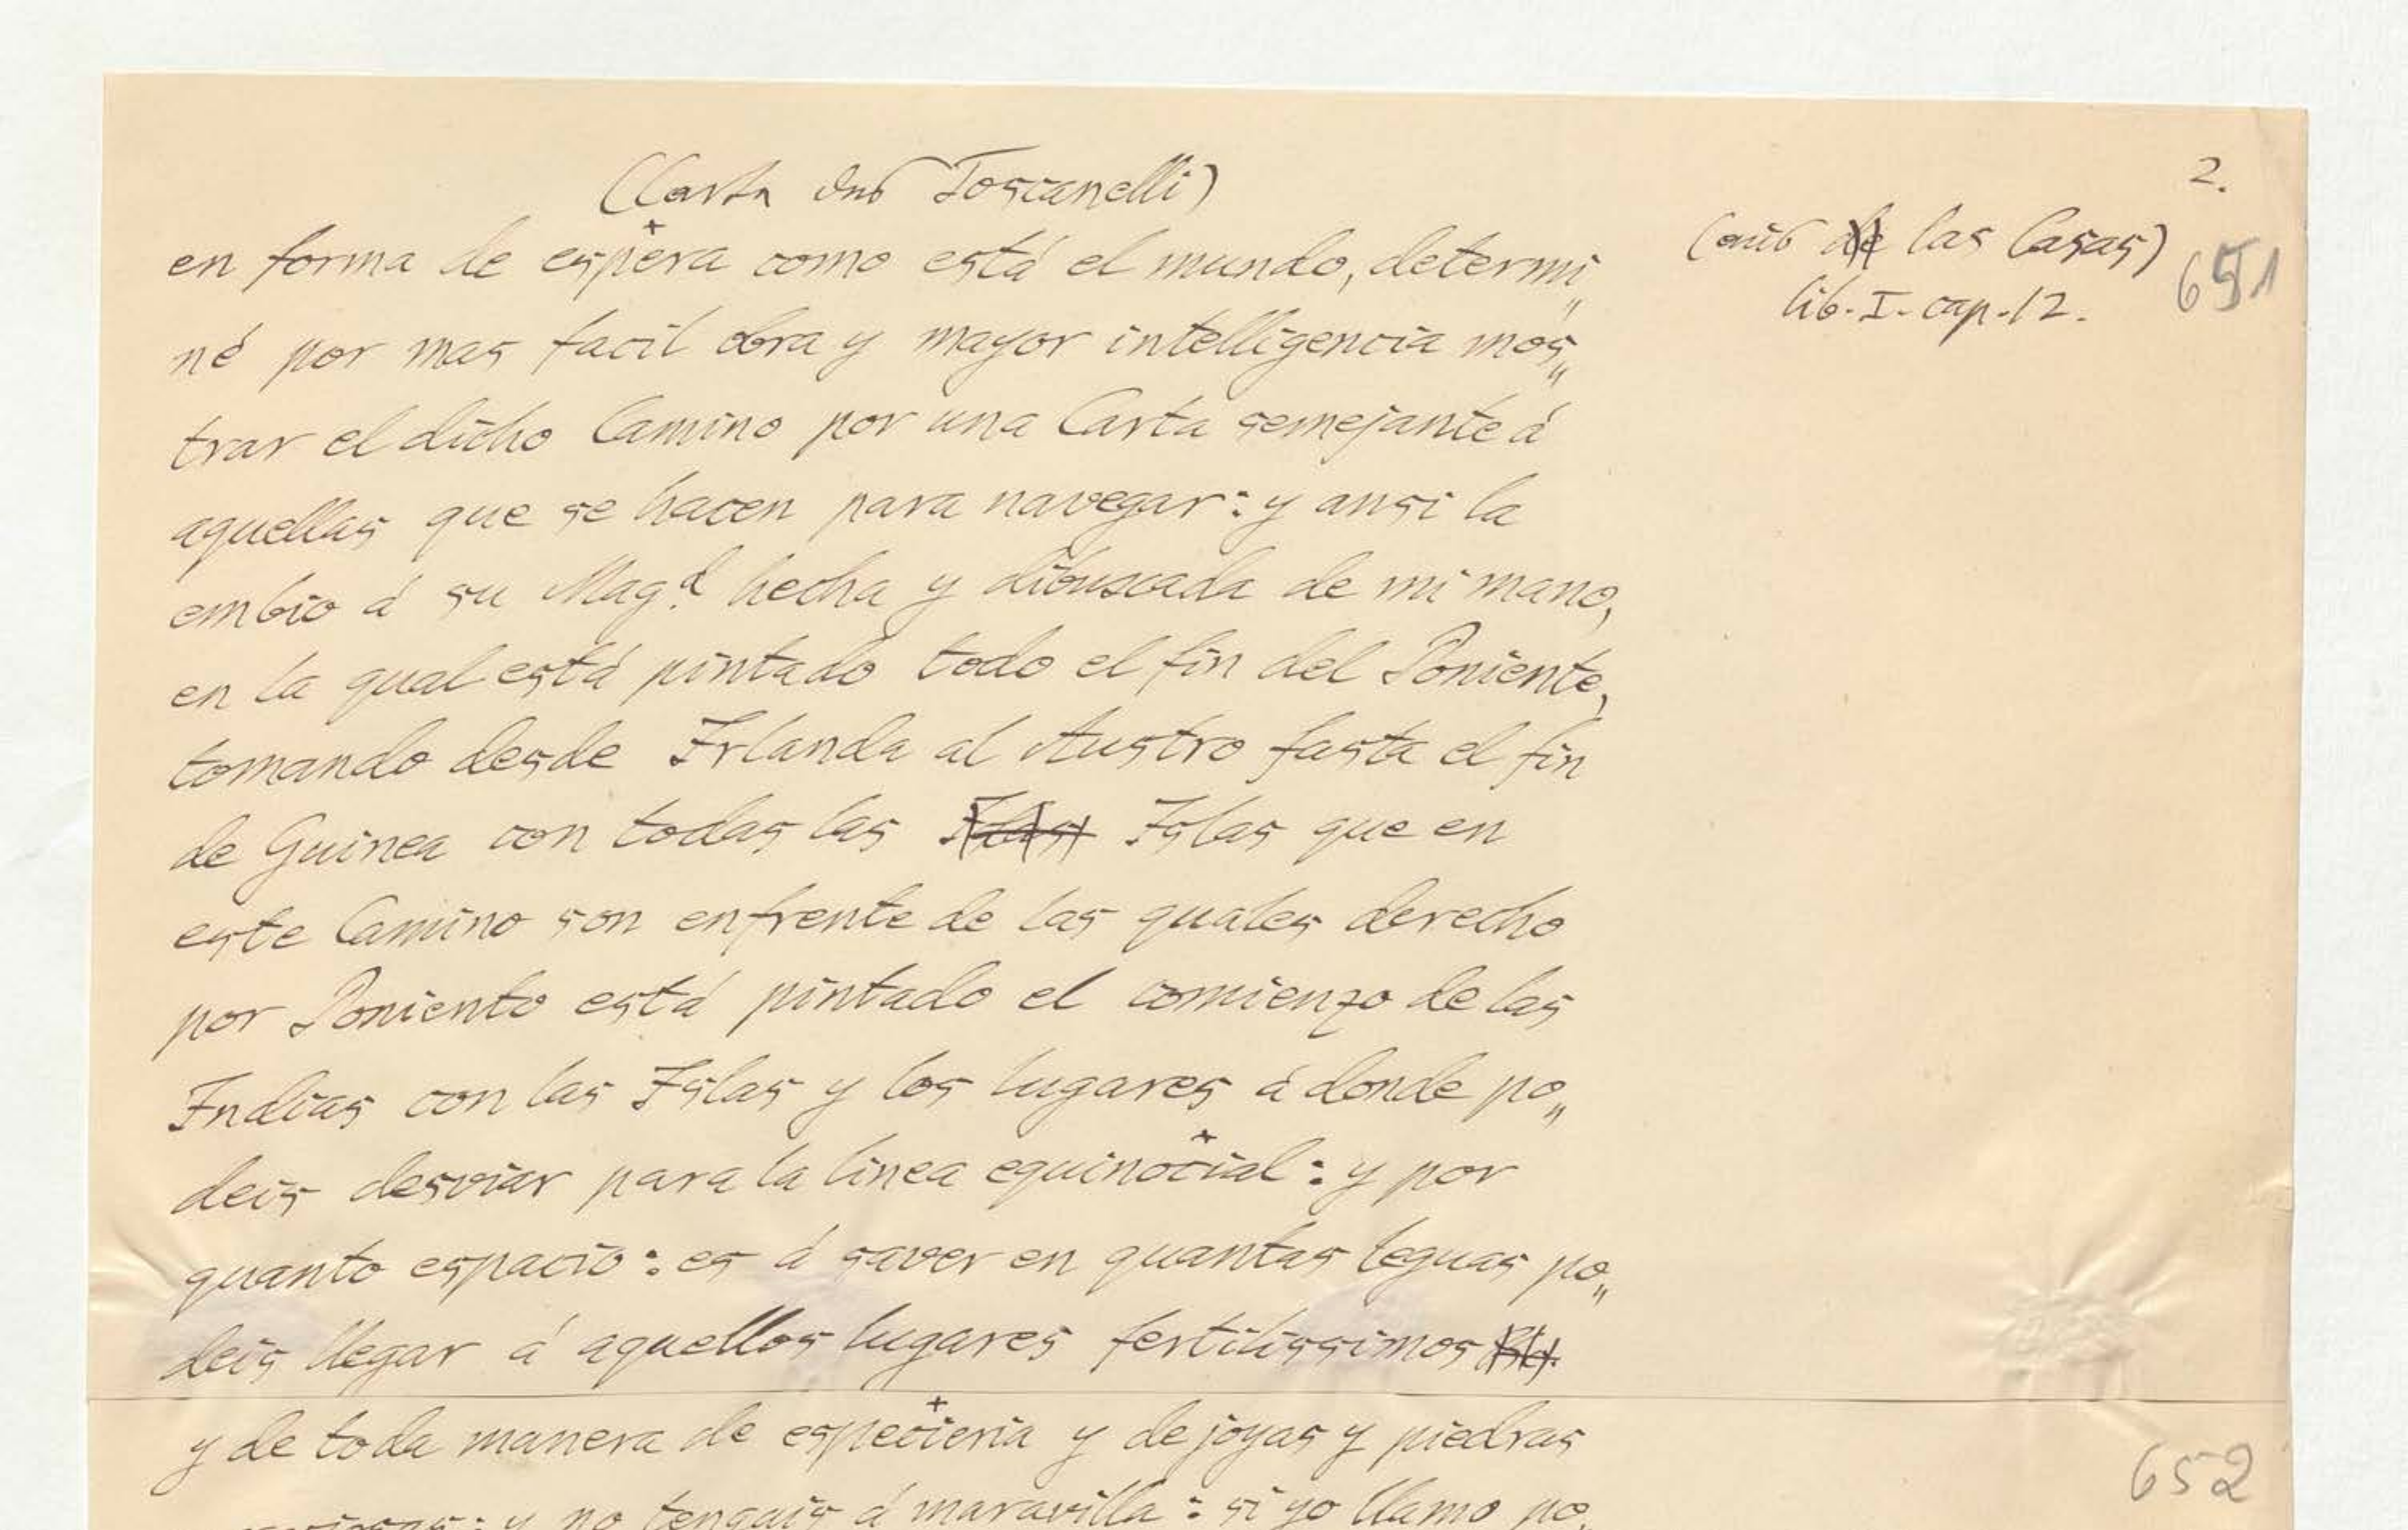 2.
(Carta des Toscanelli)
(aus de las Casas)
lib. I. cap. 12.
651
en forma de espera como está el mundo, determi„
né por mas facil obra y mayor intelligencia mos„
trar el dicho Camino por una Carta semejante á
aquellas que se hacen para navegar: y ansi la
embio á su Mag.d hecha y dibuscada de mi mano,
en la qual está pintado todo el fin del Poniente,
tomando desde Irlanda al Austro fasta el fin
de Guinea con todas las Islas Islas que en
este Camino son enfrente de las quales derecho
por Poniento está pintado el comienzo de las
Indias con las Islas y los lugares á donde po„
deis desviar para la linea equinocial: y por
quanto espacio: es á saver en quantas leguas po„
deis llegar á aquellos lugares fertilissimos
y de toda manera de especieria y de joyas y piedras
652
: y no tengais á maravilla: si yo llamo po„